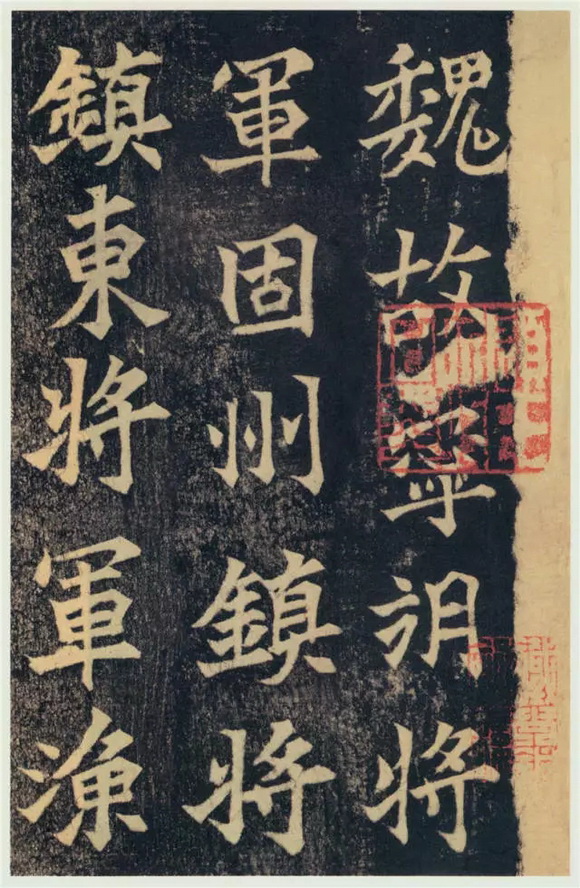 魏故寧朔將
軍固州鎮將
鎮東將軍漁